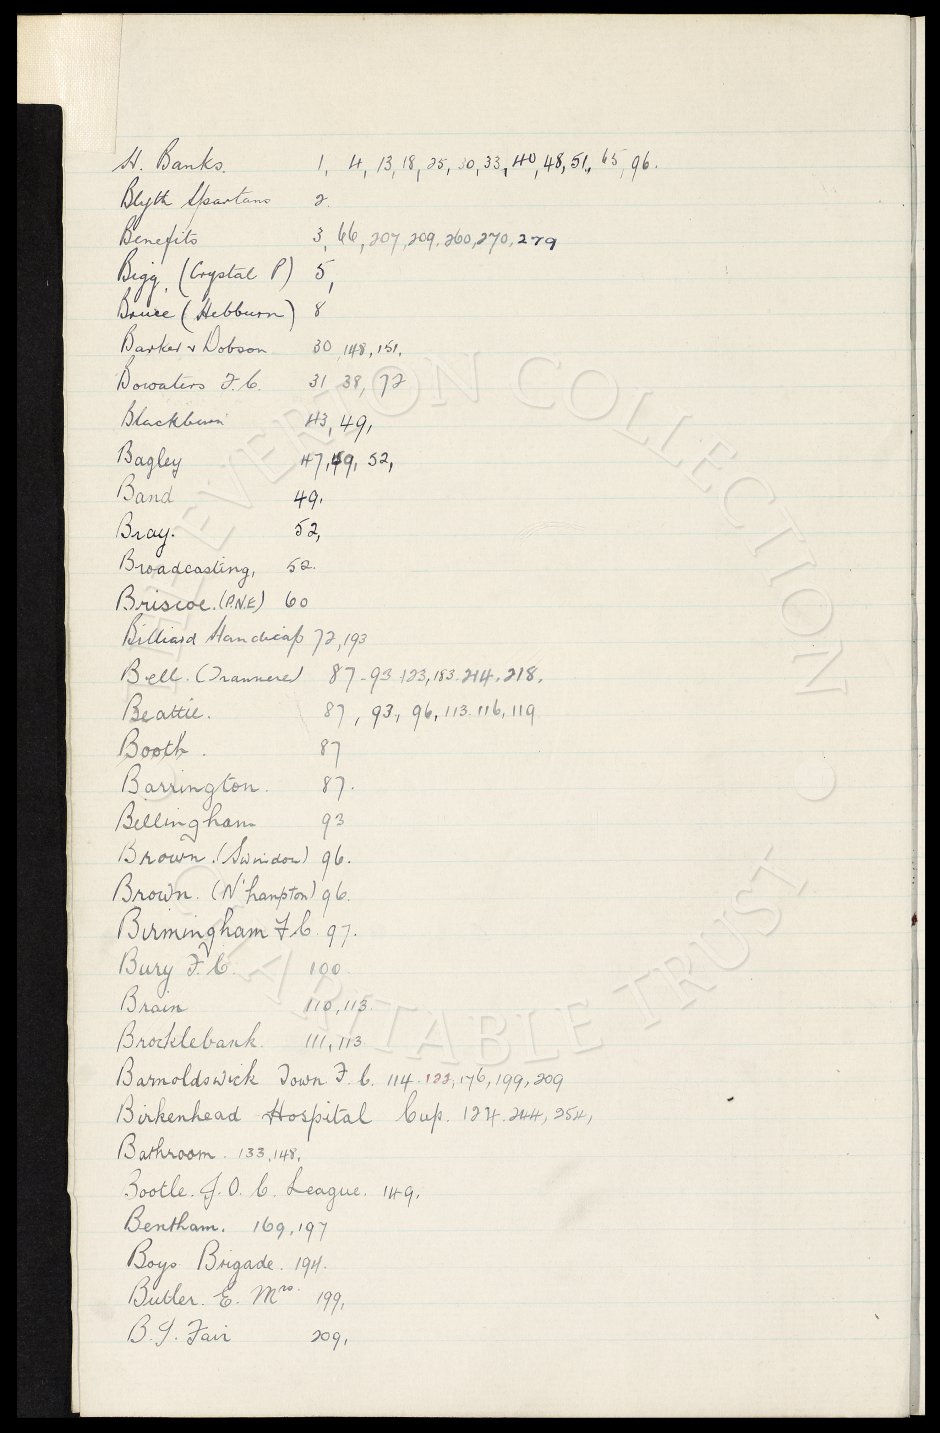 H. Banks. 1, 4, 13, 18, 25, 30, 33, 40, 48, 51, 65, 96.
Blyth Spartans 2.
Benefits 3, 66, 207, 209, 260, 270, 279
Bigg. (Crystal P) 5,
Bruce (Hebburn) 8
Barker & Dobson 30, 148, 151.
Bowaters F.C. 31 38, 72
Blackburn 43, 49,
Bagley 47, 49, 52,
Band 49.
Bray. 52,
Broadcasting, 52.
Briscoe. (P.N.E) 60
Billiard Handicap 72, 193
Bell. (Tranmere) 87-93 123, 183. 214. 218.
Beattie. 87, 93, 96, 113. 116, 119
Booth. 87
Barrington. 87.
Billingham 93
Brown. (Swindon) 96.
Brown. (N'hampton) 96.
Birmingham F.C. 97.
Bury F.C. 100.
Brain 110, 113.
Brocklebank 111, 113
Barnoldswick Town F.C. 114. 122, 176, 199, 209
Birkenhead Hospital Cup. 124. 244, 254,
Bathroom. 133, 148,
Bootle. J.O.C. League. 149.
Bentham. 169, 197
Boys Brigade. 194.
Butler. E. Mrs. 199,
B.I. Fair 209,
EVERTON COLLECTION
CHARITABLE TRUST